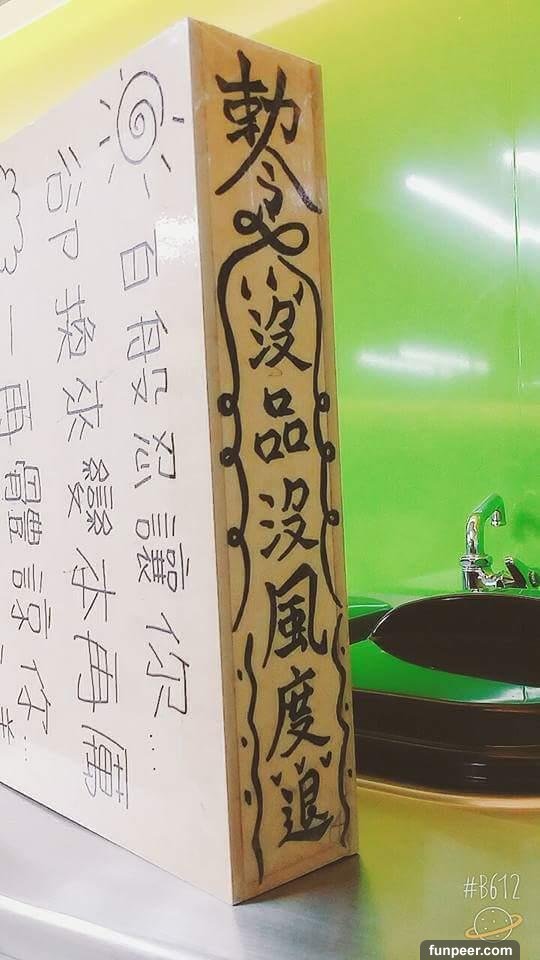 勅令
沒品沒風度退
百般忍讓你...
卻換來變本再厲
一再體諒你
#B612
funpeer.com